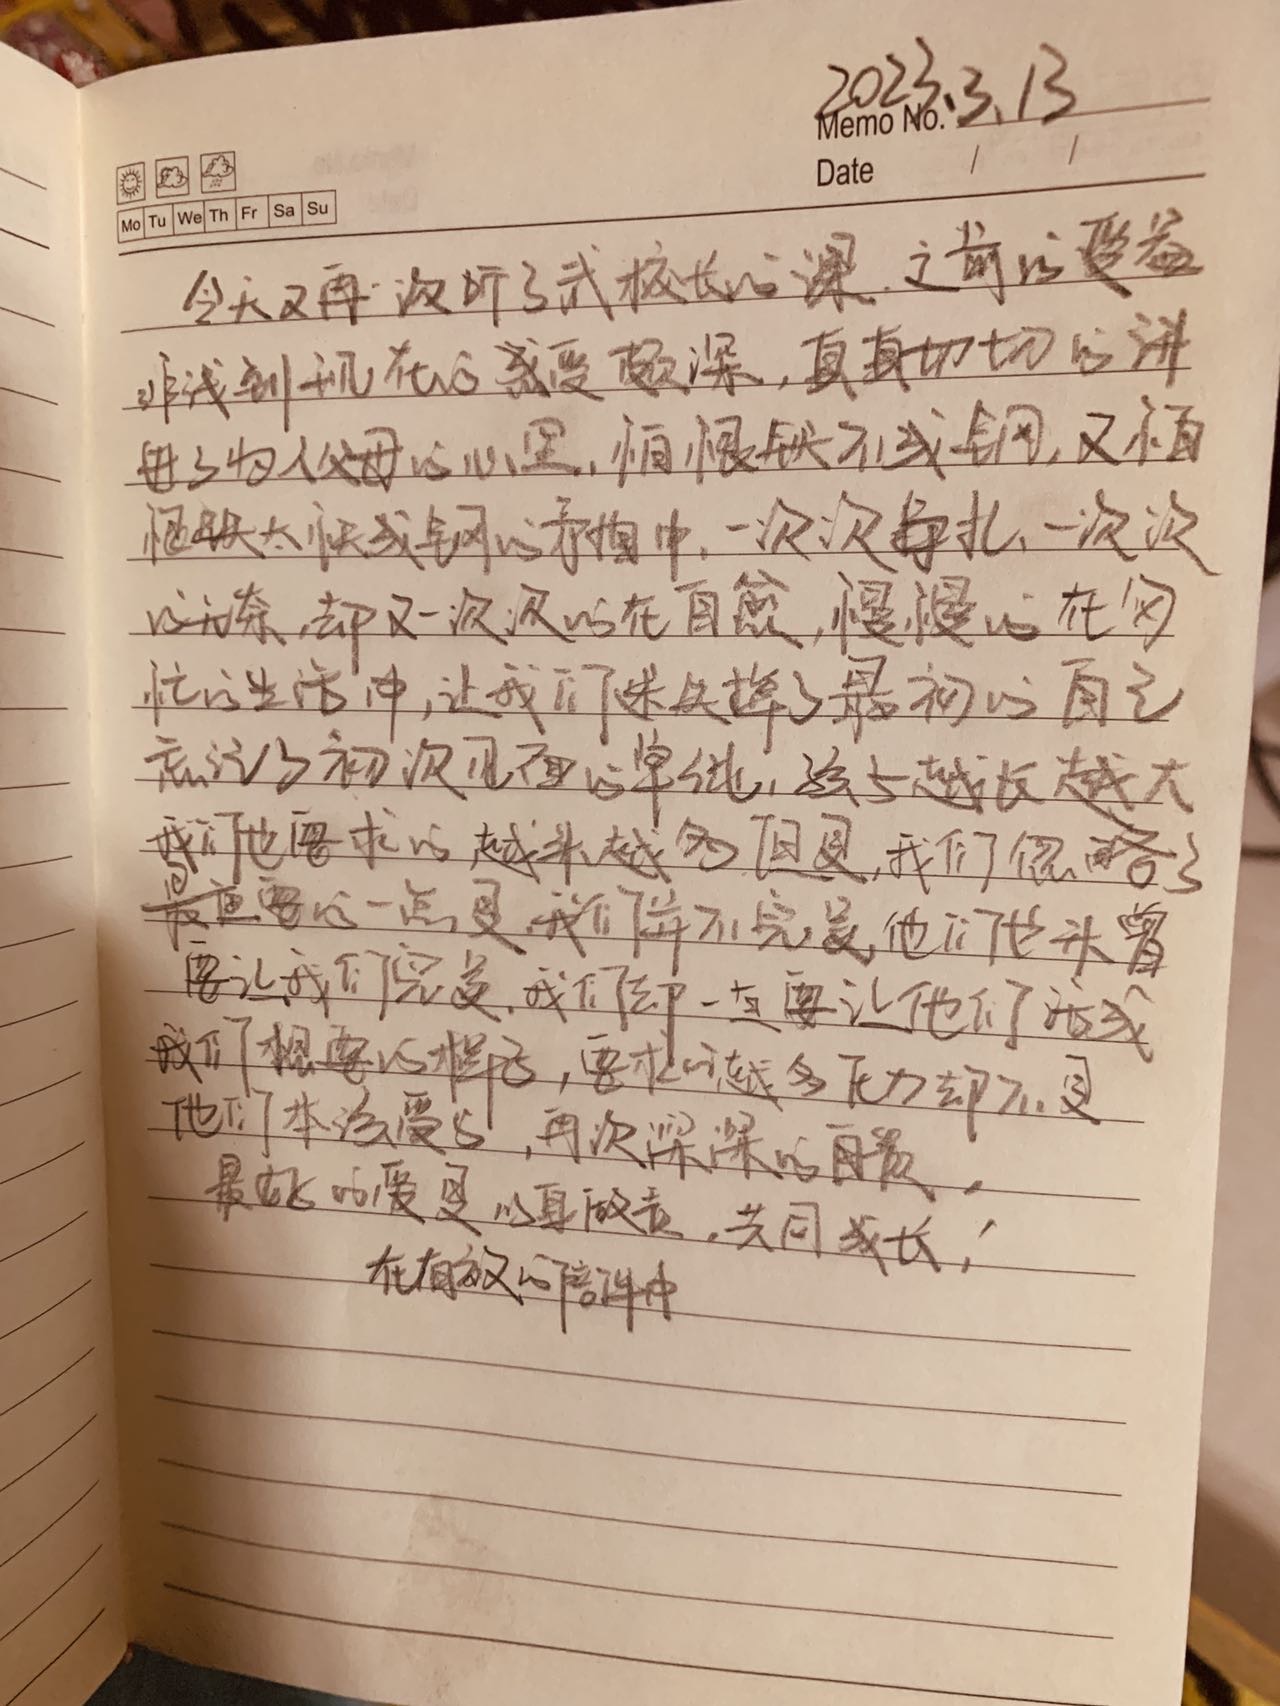 2023.3.13
Memo No.
Date / /
Mo Tu We Th Fr Sa Su
今天又再一次听了武校长的课.之前的受益
非浅到现在的感受颇深,真真切切的讲
进了为人父母的心里,怕恨铁不成钢,又怕
恨铁太快成钢的矛盾中,一次次挣扎、一次次
的无奈,却又一次次的在自愈,慢慢的在匆
忙的生活中,让我们迷失掉了最初的自己
忘记了初次见面的单纯,孩子越长越大
我们也要求的越来越多但是,我们忽略了
最重要的一点是,我们并不完美,他们也未曾
要让我们完美,我们却一直要让他们活成
我们想要的样子,要求的越多压力却不是
他们本该受的,再次深深的自责,
最好的爱是以身做责,共同成长,!
在有效的陪伴中